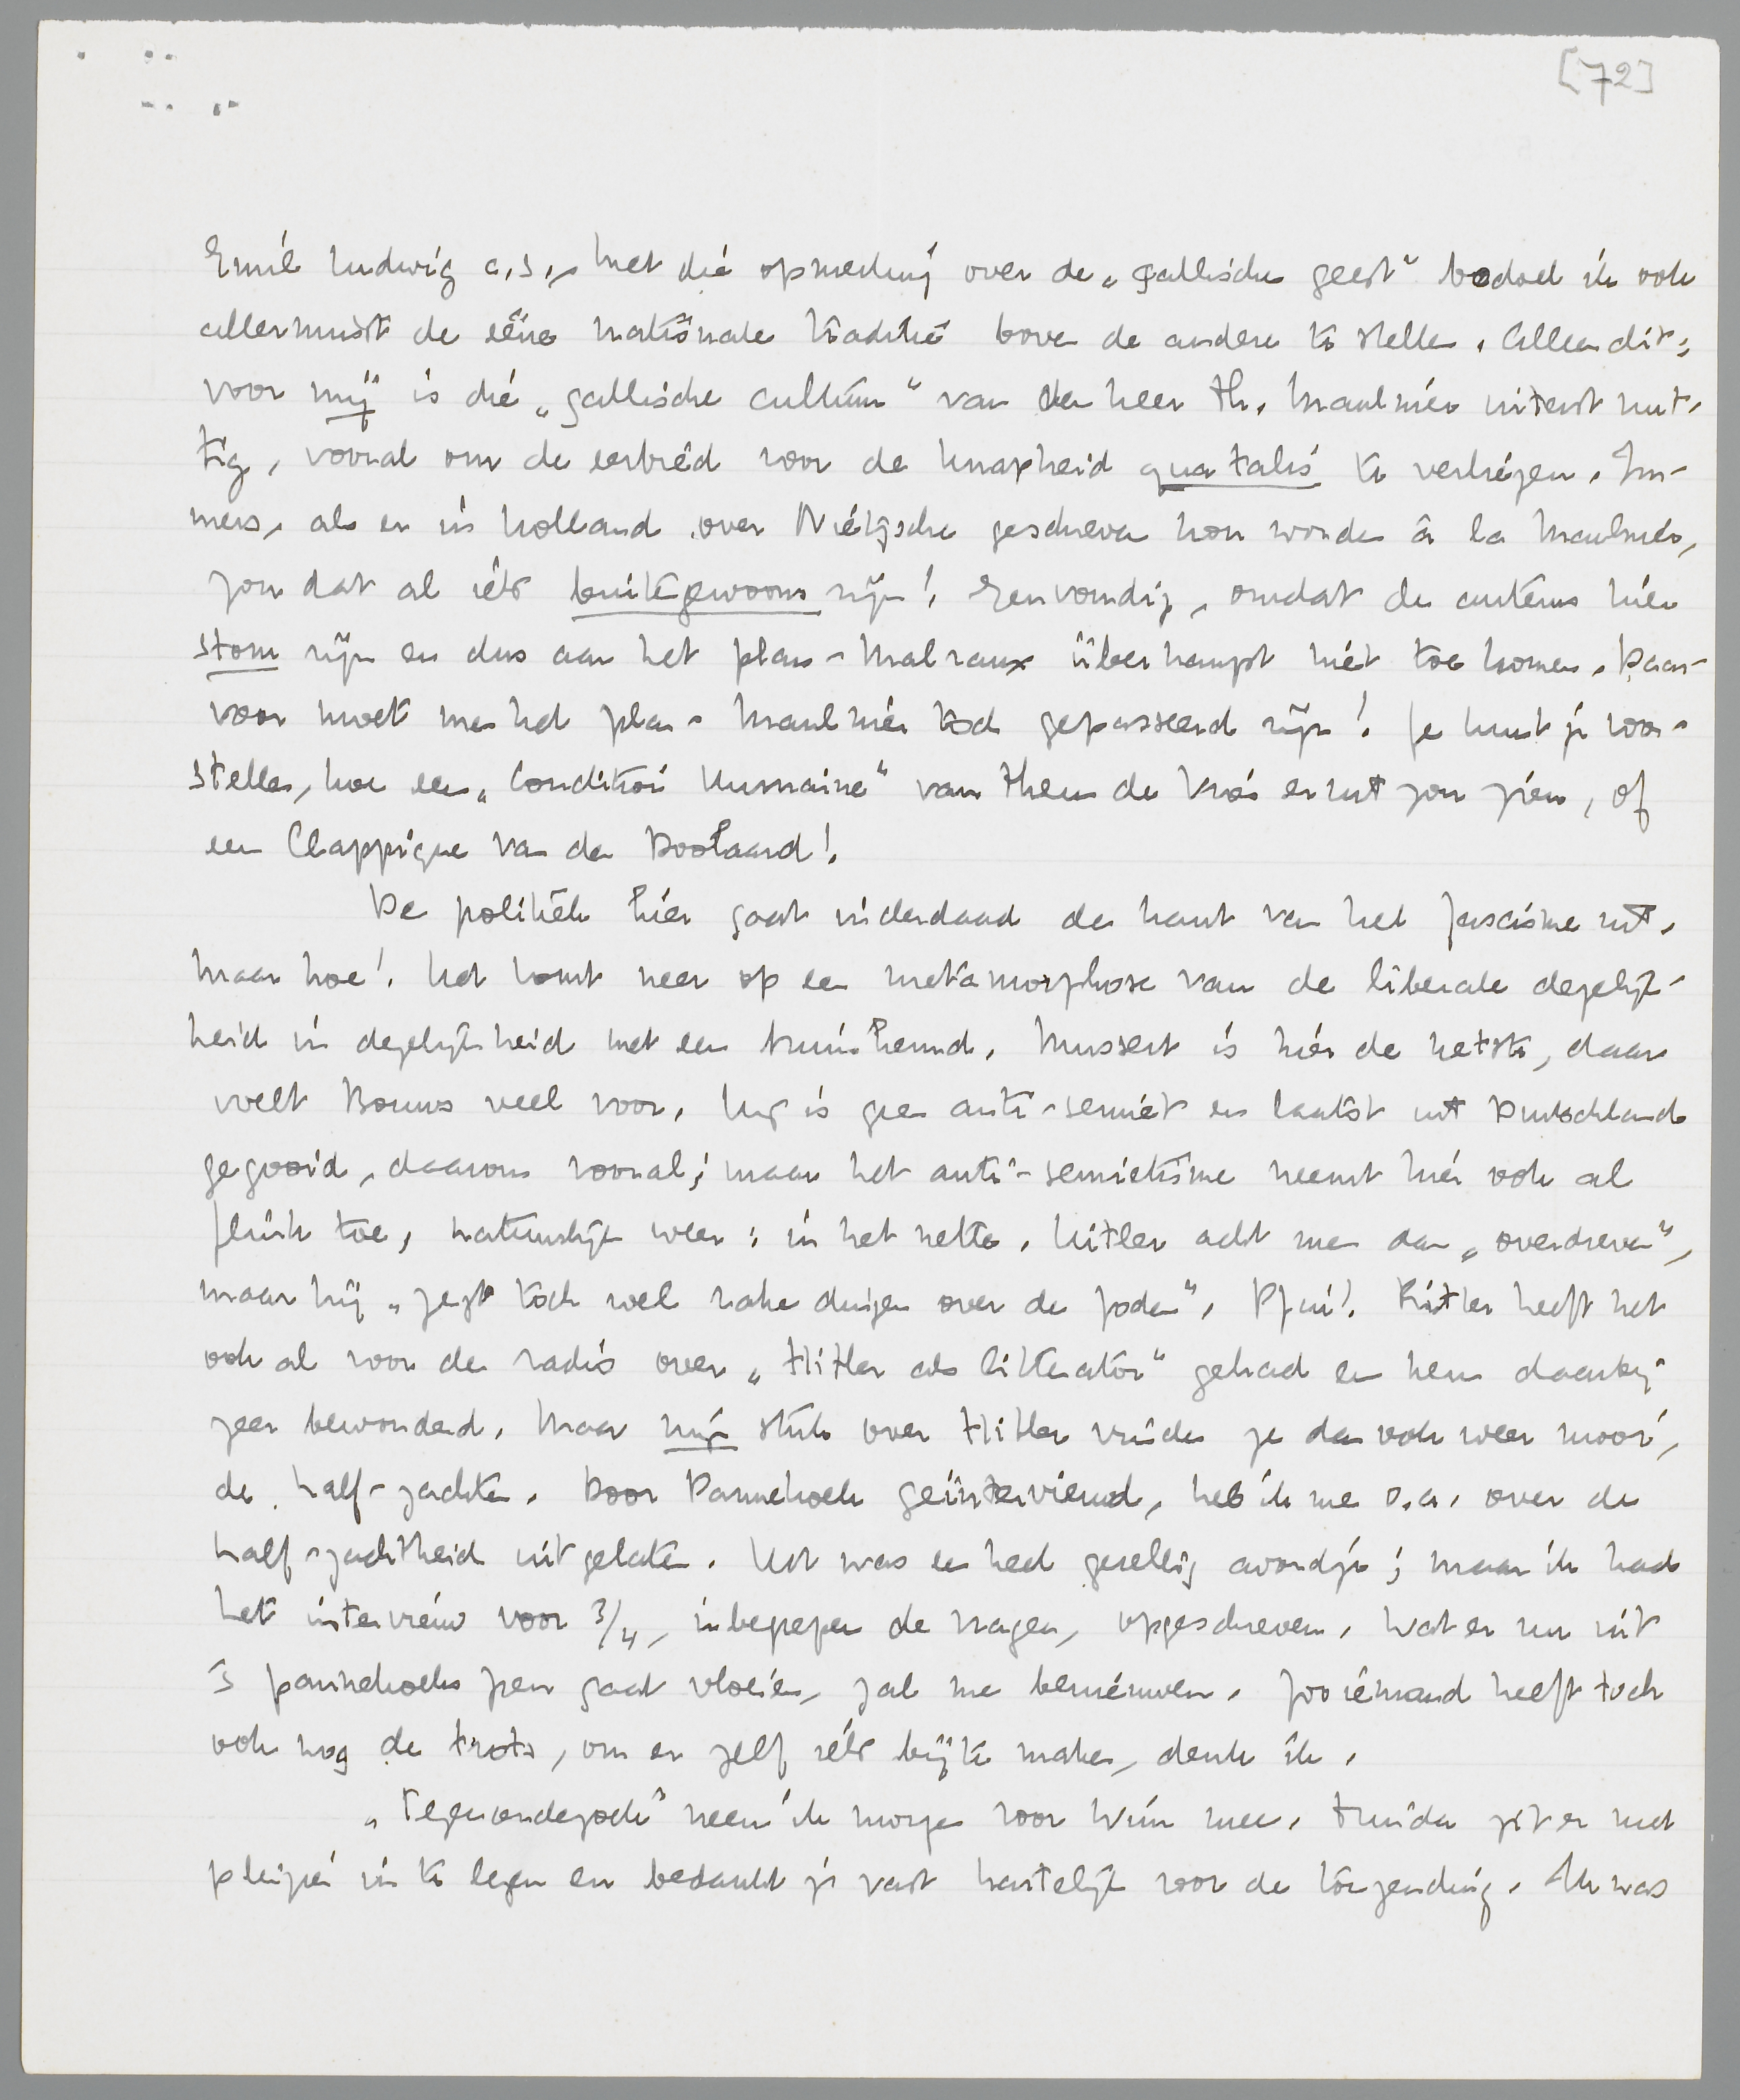 [72]
Emil Ludwig c.s., Met die opmerking over de „gallische geest” bedoel ik ook
allerminst de eene nationale traditie boven de andere te stellen. Alleen dit:
voor mij is die „gallische cultuur” van den heer Th. Maulnier uiterst nut-
tig, vooral om de eerbied voor de knapheid qua talis te verliezen. Im-
mers, als er in Holland over Nietzsche geschreven kon worden à la Maulnier,
zou dat al iets buitengewoons zijn! Eenvoudig, omdat de auteurs hier
stom zijn en dus aan het plan-Malraux überhaupt niet toe komen. Daar-
voor moet men het plan-Maulnier toch gepasseerd zijn! Je kunt je voor-
stellen, hoe een „Condition Humaine” van Theun de Vries eruit zou zien, of
een Clappique van den Doolaard!
De politiek hier gaat inderdaad den kant van het fascisme uit.
Maar hoe! Het komt neer op een metamorphose van de liberale degelijk-
heid in degelijkheid met een bruin hemd. Mussert is hier de netste, daar
voelt Bouws veel voor. Hij is geen anti-semiet en laatst uit Duitschland
gegooid, daarom vooral; maar het anti-semietisme neemt hier ook al
flink toe, natuurlijk weer: in het nette. Hitler acht men dan „overdreven”,
maar hij „zegt toch wel rake dingen over de joden”. Pfui! Ritter heeft het
ook al voor de radio over „Hitler als litterator” gehad en hem daarbij
zeer bewonderd. Maar mijn stuk over Hitler vinden ze dan ook weer mooi,
de half-zachten. Door Pannekoek geïnterviewd, heb ik me o.a. over de
half-zachtheid uitgelaten. Het was een heel gezellig avondje; maar ik had
het interview voor 3/4, inbegrepen de vragen, opgeschreven. Wat er nu uit
's pannekoeks pen gaat vloeien, zal me benieuwen. Zoo iemand heeft toch
ook nog de trots, om er zelf iets bij te maken, denk ik.
„Tegenonderzoek” neem ik morgen voor Wim mee. Truida zit er met
plezier in te lezen en bedankt je vast hartelijk voor de toezending. Ik was